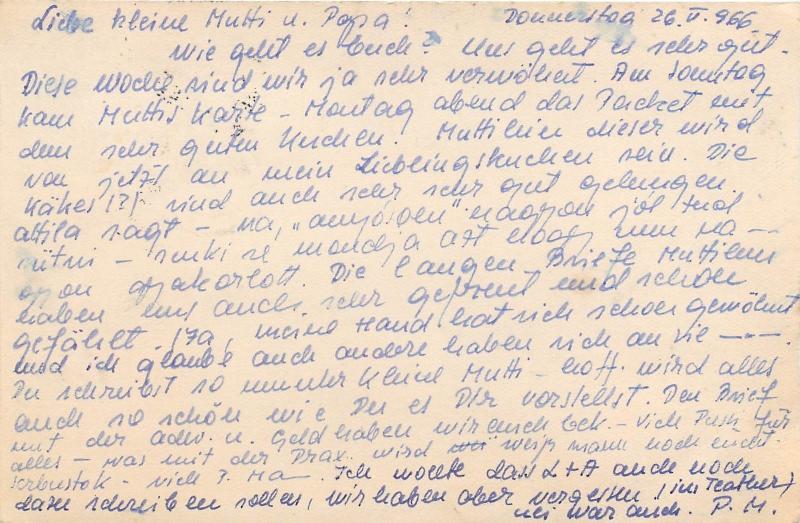 Liebe kleine Mutti u. Papa! Donnerstag 26. V. 966
Wie geht es Euch? Uns geht es sehr gut.
Diese Woche sind wir ja sehr verwöhnt. Am Sonntag
kam Muttis Karte - Montag abend das Packet mit
dem sehr guten Kuchen. Muttilein dieser wird
von jetzt an mein Lieblingskuchen sein. Die
Käkes (?) sind auch sehr sehr gut gelungen.
Attila sagt - na, "anyósom" nagyon jól tud
sütni - senki se mondja azt hogy nem na-
gyon gyakorlott. Die langen Briefe Muttilein
haben uns auch sehr gefreut und schön
gefählt. Ja, meine Hand hat sich schon gewöhnt
und ich glaube auch andere haben sich an sie ---
Du schreibst so kleine Mutti - hoff. wird alles
auch so schön wie Du es Dir vorstellst. Den Brief
mit der adw. u. Geld haben wir auch bek. - viele Pussi für
alles - was mit der Prax. wird weiß mann noch nicht.
- viele P. Ma - Ich wollte dass L + A auch noch
dazu schreiben sollen, wir haben aber vergessen (im Teather)
wir war auch. P. M.